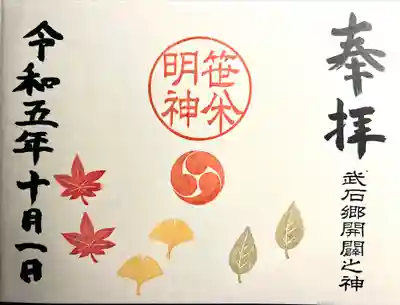 奉拝
武石郷開闢之神
笹焼
明神
令和五年十月一日